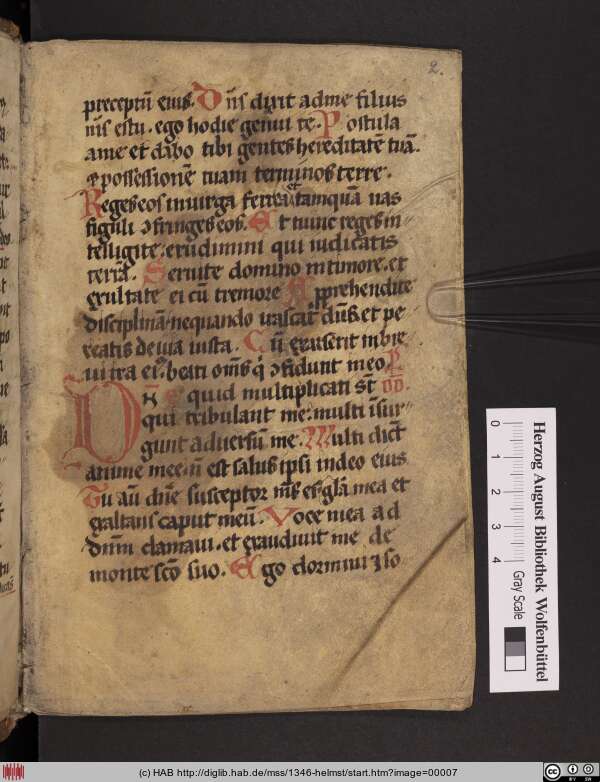 2.
preceptū eius. Dn̄s dixit ad me filius
m̄s es tu. ego hodie genui te. Postula
a me et dabo tibi gentes hereditatē tuā.
⁊ possessionē tuam terminos terre.
Reges eos in uirga ferrea et tamquā uas
figuli ꝯfringes eos. Et nunc reges in-
telligite. erudimini qui iudicatis
terrā. Seruite domino in timore. et
exultate ei cū tremore Apprehendite
disciplinā. nequando irascat᷑ dn̄s. et pe
reatis de uia iusta. Cū exarserit in bre
ui ira ei᷒. beati om̄s q̇ ꝯfidunt in eo
Dn̄e quid multiplicati st̄
qui tribulant me. multi ī sur-
gunt aduersū me. Multi dict̄
anime mee nō est salus ipsi in deo eius
Tu aū dn̄e susceptor m̄s es. gl̄a mea et
exaltans caput meū. Voce mea ad
dn̄m clamaui. et exaudiuit me de
monte sc̄o suo. Ego dormiui ⁊ so
0
1
2
3
4
Gray Scale
Herzog August Bibliothek Wolfenbüttel
(c) HAB http://diglib.hab.de/mss/1346-helmst/start.htm?image=00007
cc BY SA